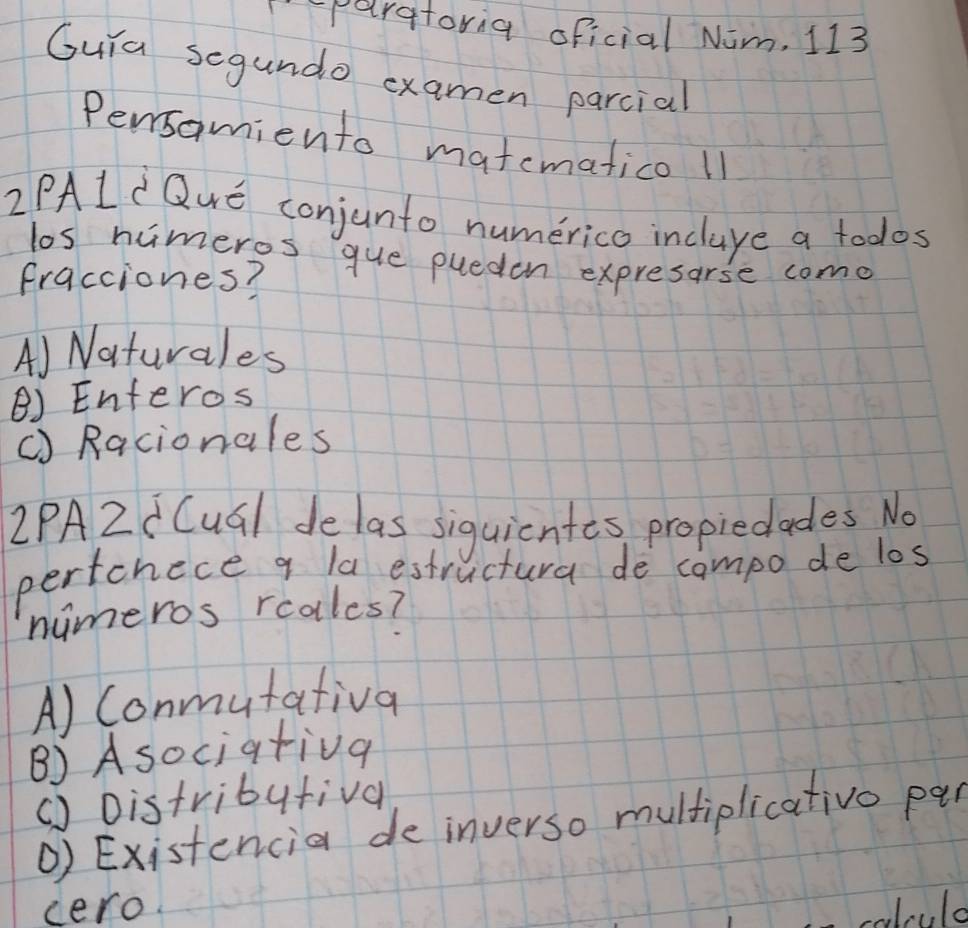 oficial Núm. 113
Guía segundo examen parcial
Pensamiento matematico II
2PA1 ¿Qué conjunto numérico incluye a todos
los números que pueden expresarse como
fracciones?
A) Naturales
B) Enteros
C) Racionales
2PA2 ¿Cuál de las siguientes propiedades No
pertenece a la estructura de campo de los
números reales?
A) Conmutativa
B) Asociativa
C) Distributiva
D) Existencia de inverso multiplicativo par
cero.